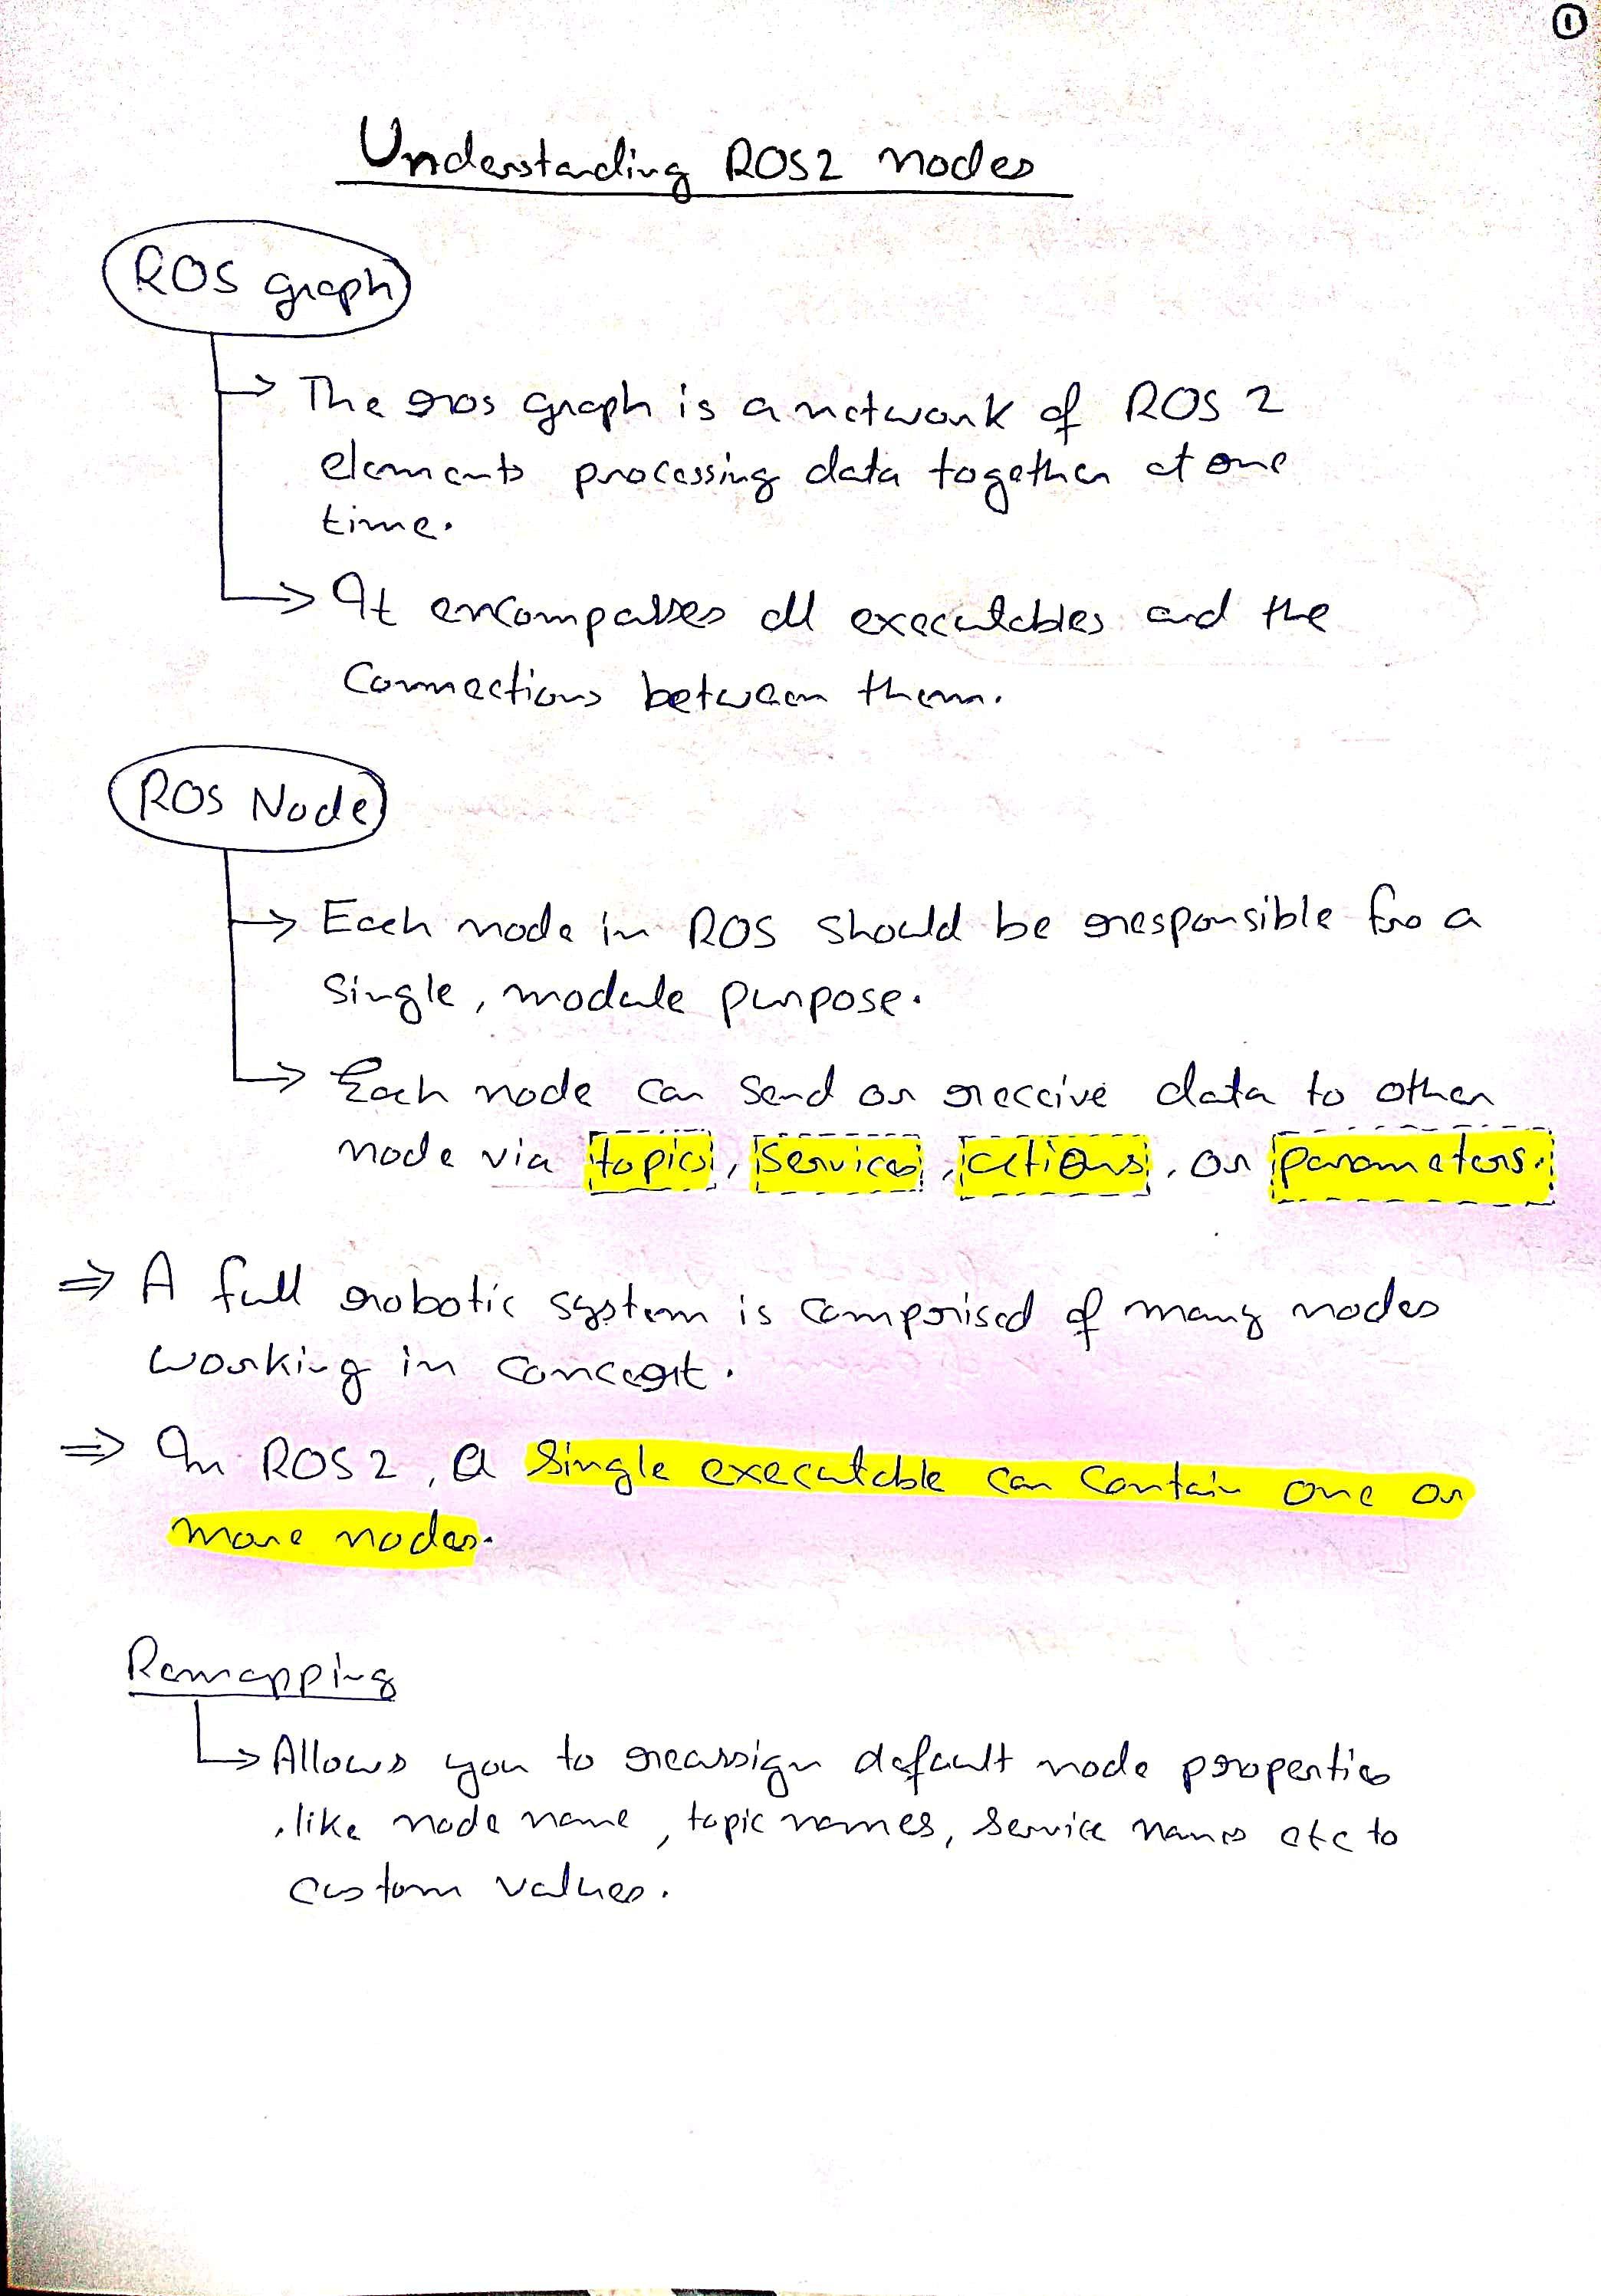 1
Understanding ROS2 nodes
ROS graph
→ The ros graph is a network of ROS 2
elements processing data together at one
time.
→ It encompasses all executables and the
Connections between them.
ROS Node
→ Each node in ROS should be responsible for a
Single, module purpose.
→ Each node can send or receive data to other
node via topics, services, actions, or parameters.
⇒ A full robotic system is comprised of many nodes
working in concert.
⇒ In ROS2, a single executable can contain one or
more nodes.
Remapping
→ Allows you to reassign default node properties
, like node name, topic names, service names etc to
custom values.